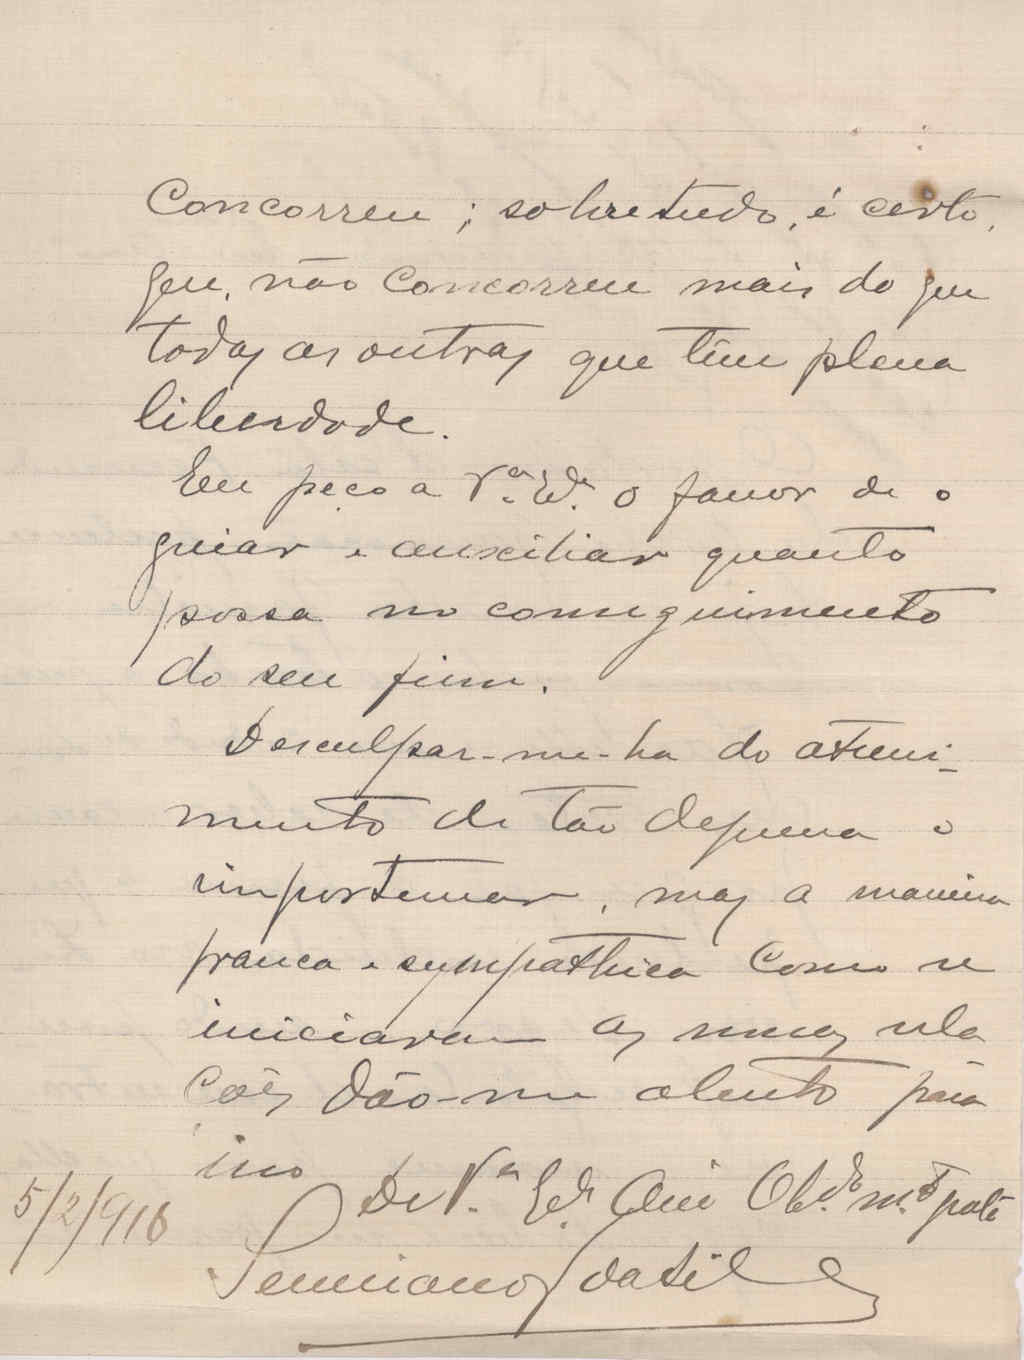 Concorreu; sobretudo, é certo,
que, não concorreu mais do que
todas as outras que têm plena
liberdade.
Eu peço a V.ª Ex.ª o favor de o
guiar e auxiliar quanto
possa no conseguimento
do seu fim.
Desculpar-me-ha do atrevi-
mento de tão depressa o
importunar, mas a maneira
franca e sympathica como se
iniciaram as nossas rela
ções dão-me alento para
isso
De V.ª Ex.ª Obd.º m.to
5/2/916
da Sil